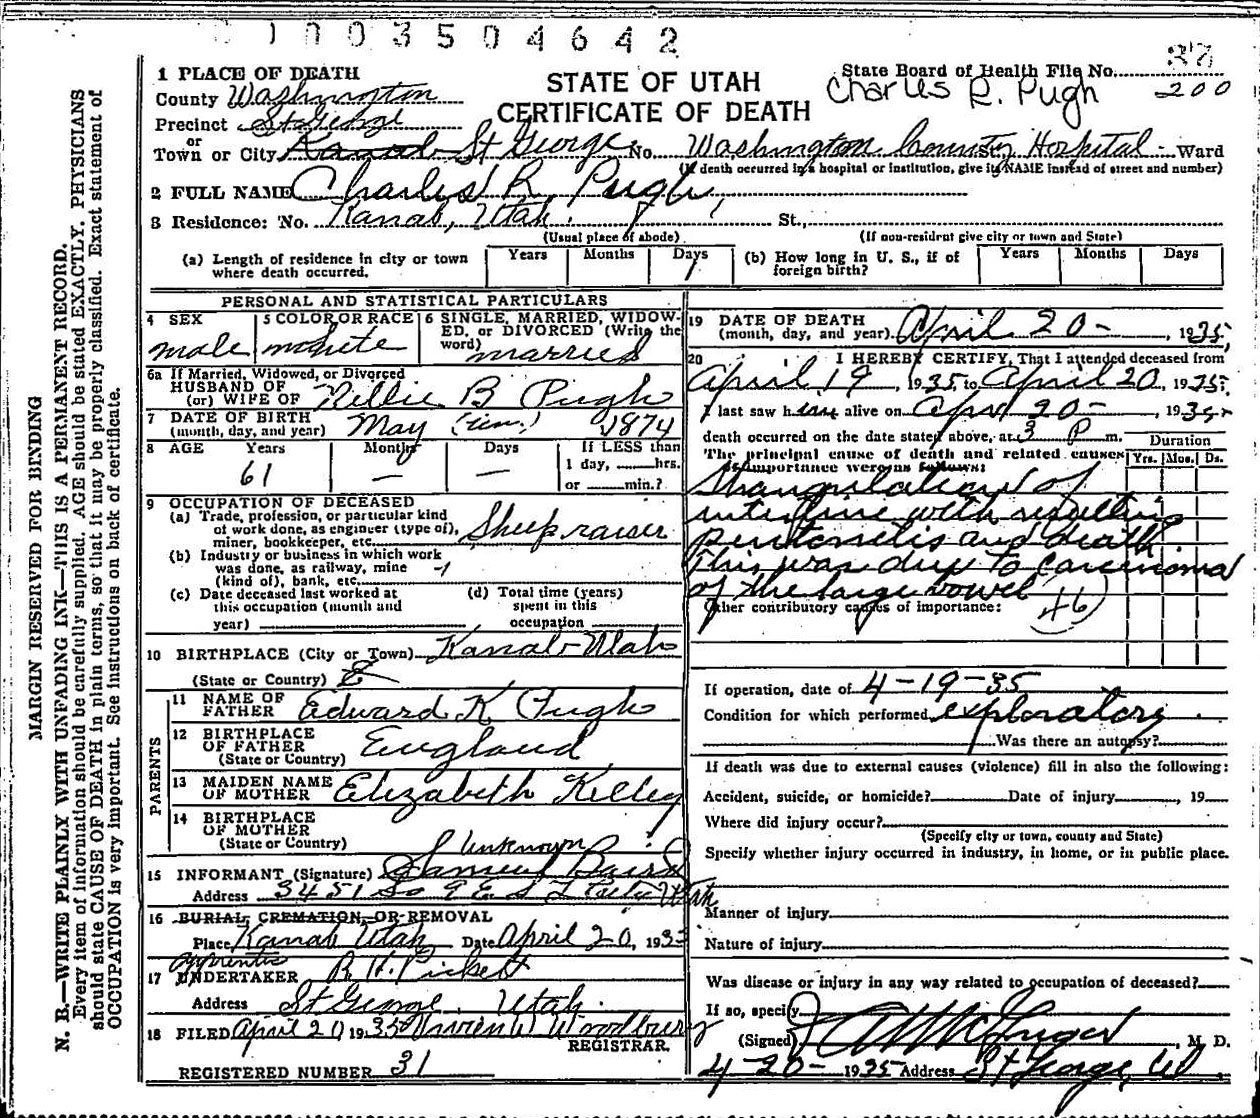 1003504642
1 PLACE OF DEATH
County Washington
Precinct St George
or
Town or City Kanab St George No. Washington County Hospital Ward
STATE OF UTAH
CERTIFICATE OF DEATH
State Board of Health File No. 37
Charles R. Pugh 200
(If death occurred in a hospital or institution, give its NAME instead of street and number)
2 FULL NAME Charles R Pugh
3 Residence: No. Kanab, Utah. St.,
(Usual place of abode) (If non-resident give city or town and State)
(a) Length of residence in city or town where death occurred. Years Months Days 1
(b) How long in U. S., if of foreign birth? Years Months Days
PERSONAL AND STATISTICAL PARTICULARS
4 SEX male
5 COLOR OR RACE white
6 SINGLE, MARRIED, WIDOWED, or DIVORCED (Write the word) married
6a If Married, Widowed, or Divorced
HUSBAND OF
(or) WIFE OF Nellie B Pugh
7 DATE OF BIRTH
(month, day, and year) May 1874
8 AGE Years 61 Months — Days —
If LESS than
1 day, hrs.
or min.?
9 OCCUPATION OF DECEASED
(a) Trade, profession, or particular kind
of work done, as engineer (type of),
miner, bookkeeper, etc. Sheep raiser
(b) Industry or business in which work
was done, as railway, mine
(kind of), bank, etc.
(c) Date deceased last worked at
this occupation (month and
year)
(d) Total time (years)
spent in this
occupation
10 BIRTHPLACE (City or Town) Kanab Utah
(State or Country)
PARENTS
11 NAME OF
FATHER Edward K Pugh
12 BIRTHPLACE
OF FATHER England
(State or Country)
13 MAIDEN NAME
OF MOTHER Elizabeth Kelley
14 BIRTHPLACE
OF MOTHER
(State or Country) Unknown
15 INFORMANT (Signature) Samuel Baird
Address 3451 So 9 E S L City Utah
16 BURIAL, CREMATION, OR REMOVAL
Place Kanab Utah Date April 20, 1935
apprentice
17 UNDERTAKER R H Pickett
Address St George, Utah.
18 FILED April 20 1935 Woodbury
REGISTRAR.
REGISTERED NUMBER 31
19 DATE OF DEATH
(month, day, and year) April 20 - , 1935
20 I HEREBY CERTIFY, That I attended deceased from
April 19, 1935, to April 20, 1935
I last saw him alive on April 20 - , 1935
death occurred on the date stated above, at 3 P m.
The principal cause of death and related causes
of importance were as follows:
Duration
Yrs. Mos. Ds.
Strangulation of
intestine with resulting
peritonitis and death
This was due to Carcinoma
of the large bowel
Other contributory causes of importance: 46
If operation, date of 4-19-35
Condition for which performed exploratory
Was there an autopsy?
If death was due to external causes (violence) fill in also the following:
Accident, suicide, or homicide? Date of injury , 19
Where did injury occur?
(Specify city or town, county and State)
Specify whether injury occurred in industry, in home, or in public place.
Manner of injury
Nature of injury
Was disease or injury in any way related to occupation of deceased?
If so, specify
(Signed) , M. D.
4-20- 1935 Address St George, Ut
MARGIN RESERVED FOR BINDING
N. B.—WRITE PLAINLY WITH UNFADING INK—THIS IS A PERMANENT RECORD.
Every item of information should be carefully supplied. AGE should be stated EXACTLY. PHYSICIANS
should state CAUSE OF DEATH in plain terms, so that it may be properly classified. Exact statement of
OCCUPATION is very important. See instructions on back of certificate.